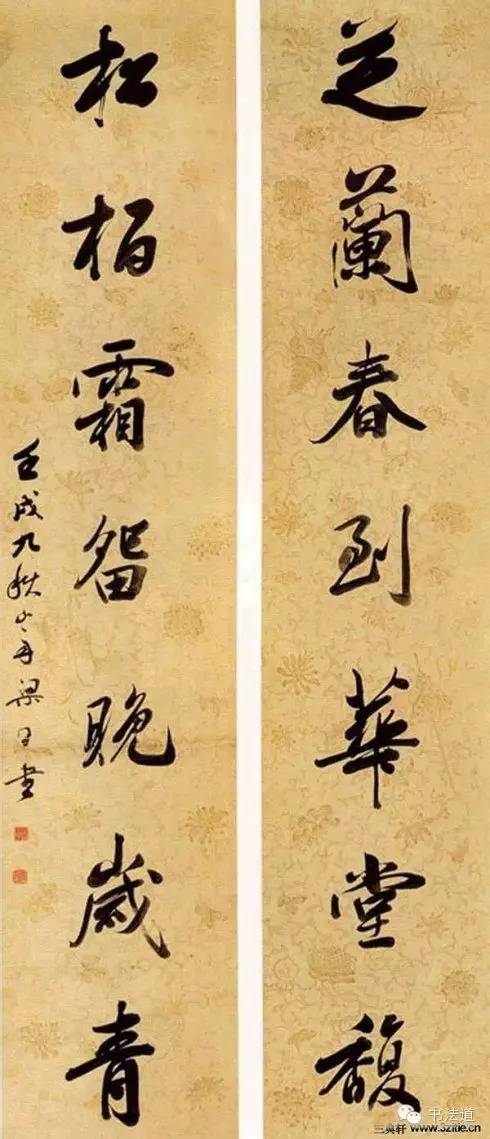 芝蘭春到華堂馥
松柏霜留晚歲青
壬戌九秋山舟梁同書
书法道
三真轩 www.3zitie.cn